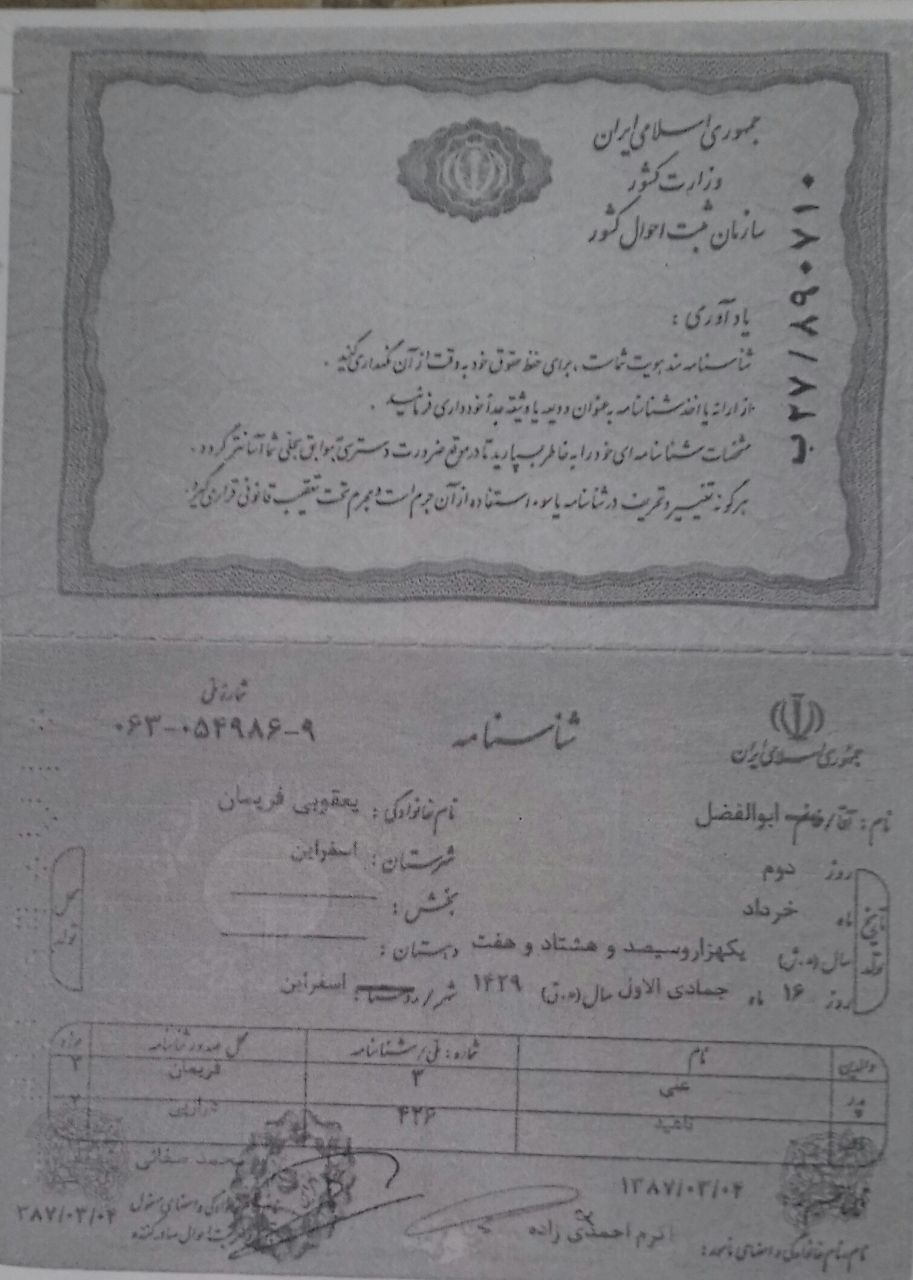 جمهوری اسلامی ایران
وزارت کشور
سازمان ثبت احوال کشور
ب۲۷/۸۹۰۷۱۰
یادآوری :
شناسنامه سند هویت شماست ، برای حفظ حقوق خود به دقت از آن نگهداری کنید .
از ارائه یا اخذ شناسنامه به عنوان ودیعه یا وثیقه جداً خودداری فرمائید .
مشخصات شناسنامه ای خود را به خاطر بسپارید تا در موقع ضرورت دسترسی به سوابق سجلی شما آسانتر گردد .
هرگونه تغییر و تحریف در شناسنامه یا سوء استفاده از آن جرم است و مجرم تحت تعقیب قانونی قرار می گیرد .
جمهوری اسلامی ایران
شناسنامه
شماره ملی
۰۶۳-۰۵۴۹۸۶-۹
نام : آقا/خانم ابوالفضل نام خانوادگی : یعقوبی فریمان
تاریخ تولد
روز دوم شهرستان : اسفراین
ماه خرداد بخش :
سال (ه.ش) یکهزاروسیصد و هشتاد و هفت دهستان :
روز ۱۶ ماه جمادی الاول سال (ه.ق) ۱۴۲۹ شهر/روستا : اسفراین
محل تولد
والدین نام شماره : ملی/شناسنامه محل صدور شناسنامه حوزه
پدر ۳ فریمان ۲
ناهید ۴۲۶
محمد صفائی
۱۳۸۷/۰۳/۰۴
اکرم احمدی زاده
نام، نام خانوادگی و امضای
نام خانوادگی و امضای مسئول
۳۸۷/۰۳/۰۴